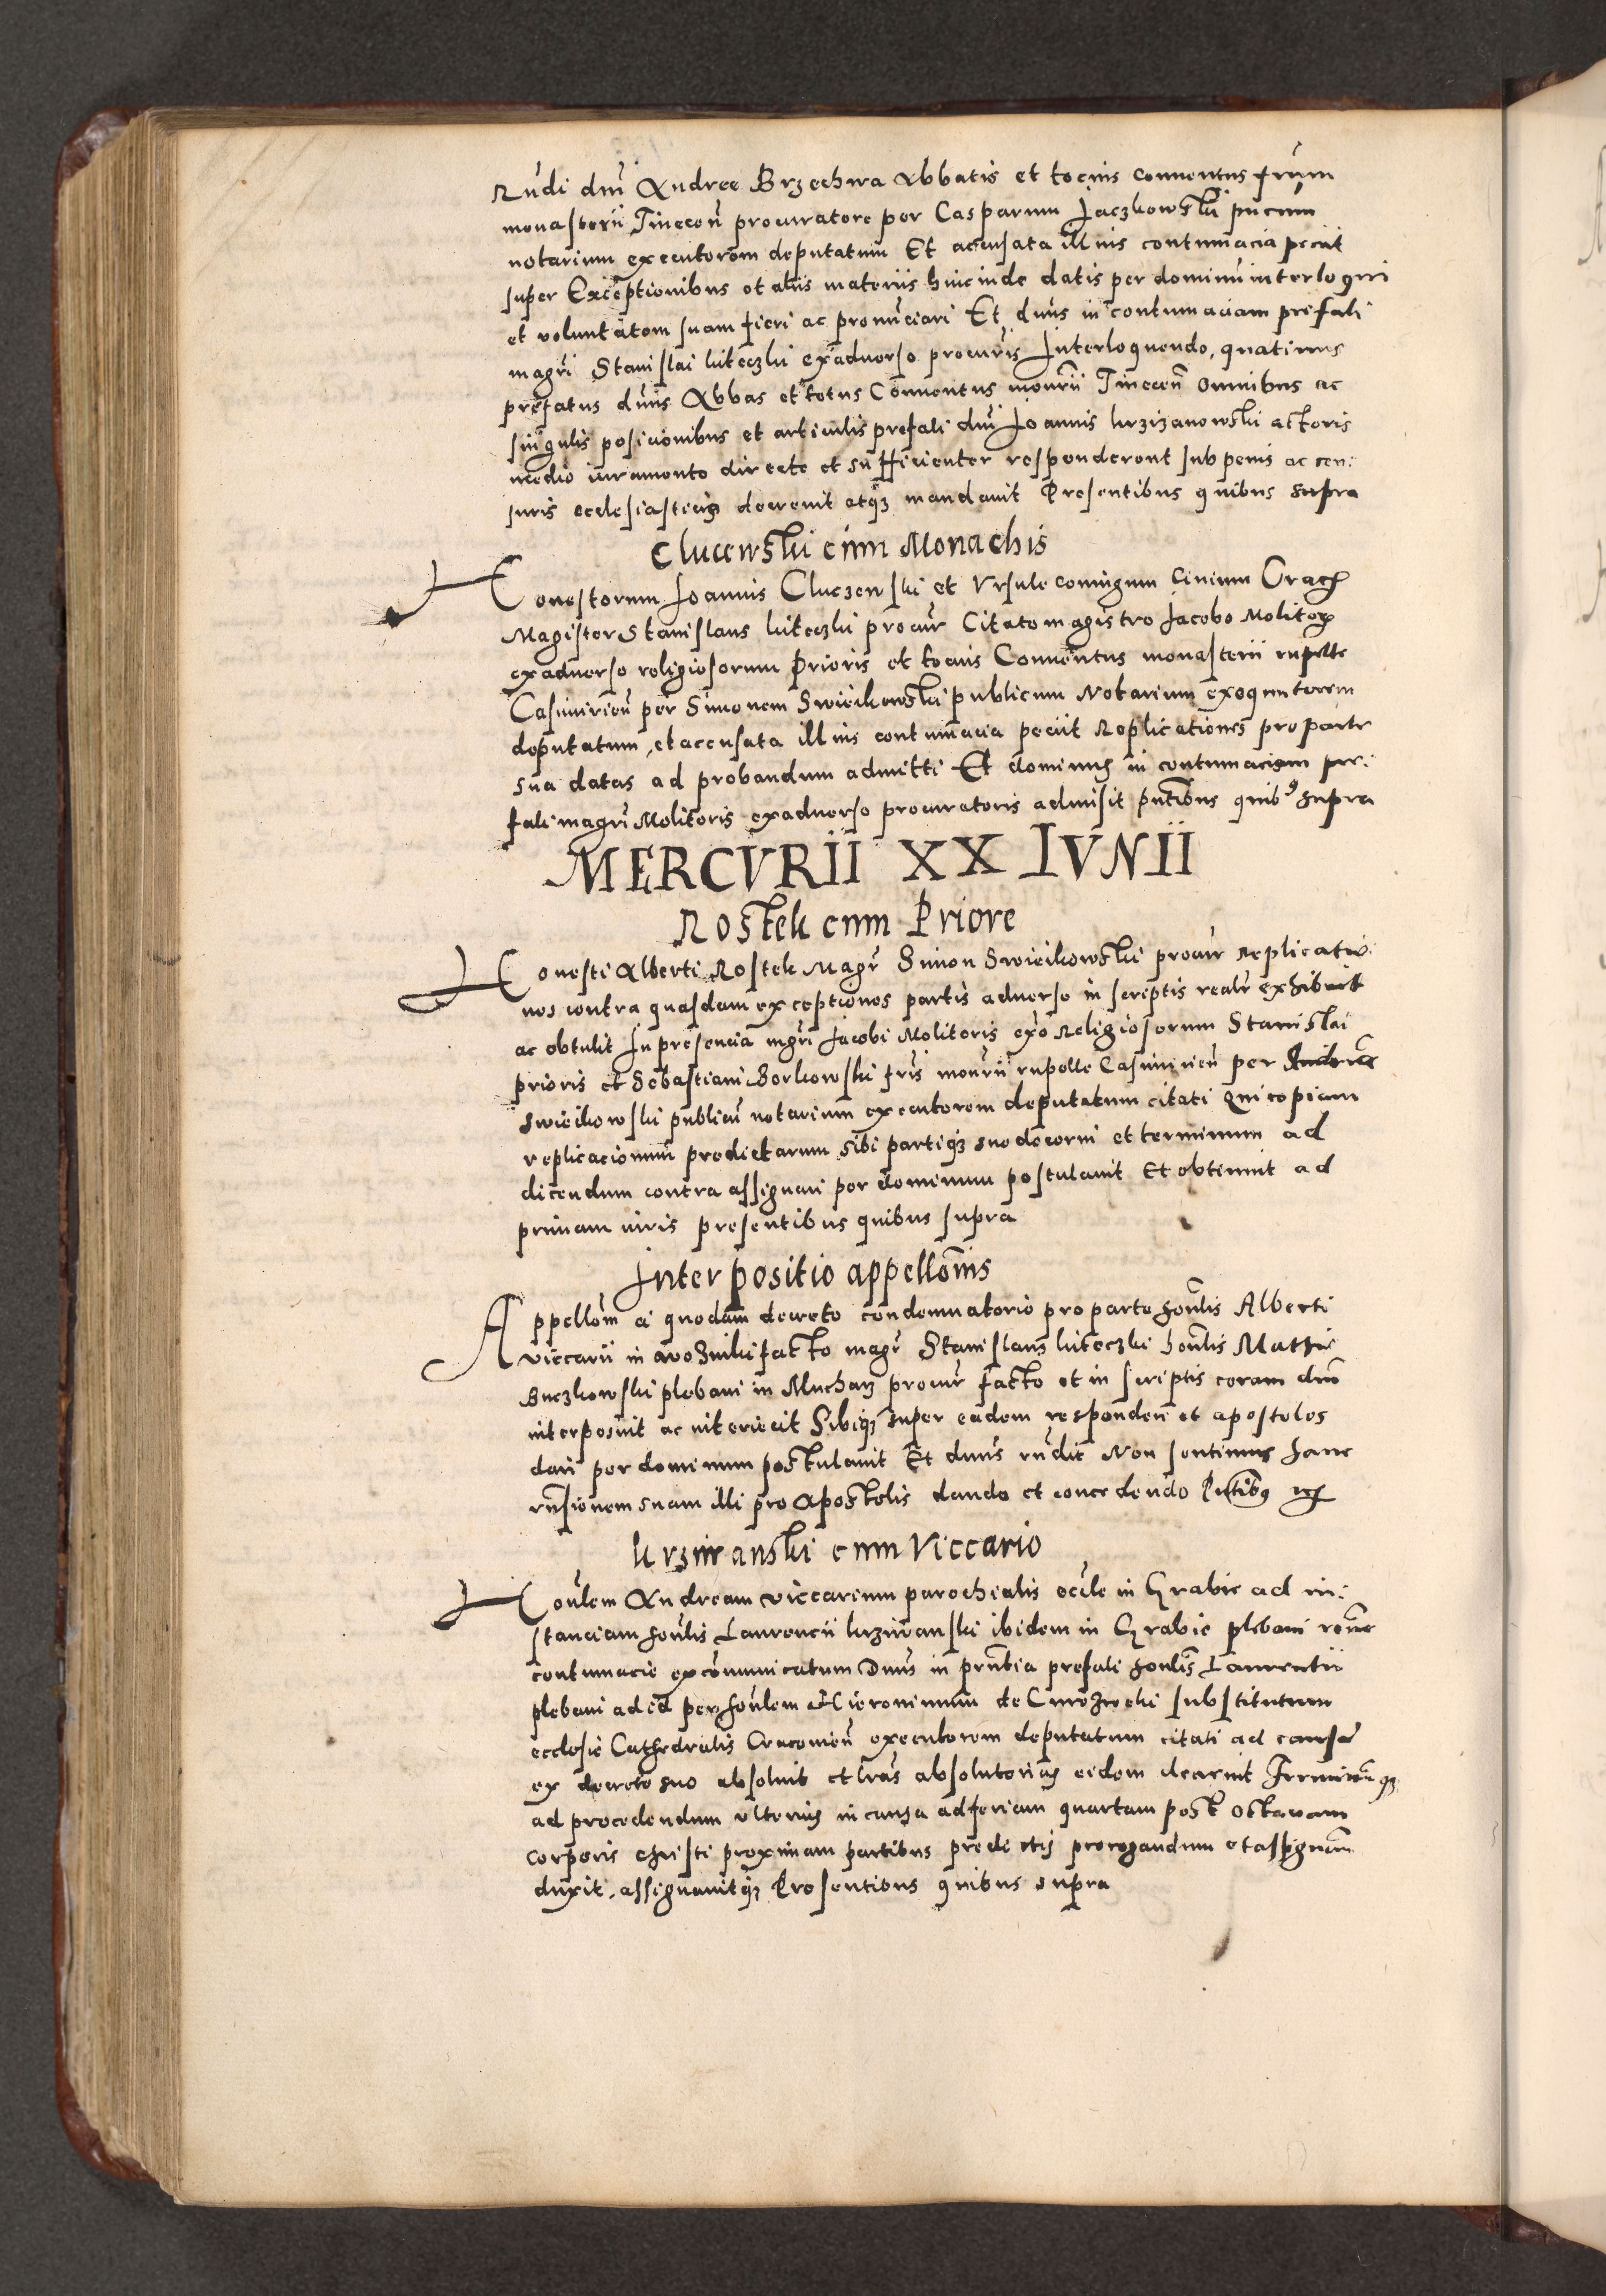 Rudi dni Andree Brzechwa Abbatis et tocius conuentus frum
monasterii Tinecen procuratore per Casparum Jaczkowski pucum
notarium executorem deputatum Et accusata illius contumacia peciit
super Exceptionibus et aliis materiis hincinde datis per dominu interloqui
et voluntatem suam fieri ac pronunciari Et dnus in contumaciam prefati
magri Stanislai kiteczki exaduerso procuris Interloquendo, quatinus
prefatus dnus Abbas et totus Conuentus monrii Tinecen omnibus ac
singulis posicionibus et articulis prefati dni Joannis krzizanowski actoris
medio iuramento directe et sufficienter responderent sub penis ac cen:
suris ecclesiasticis decreuit atq3 mandauit Presentibus quibus supra
Clucewski cum Monachis
Honestorum Joannis Cluczewski et Vrsule coniugum Ciuium Crac
Magister Stanislaus kiteczki procur Citato magistro Jacobo Molitor
exaduerso religiosorum Prioris et tocius Conuentus monasterii rupelle
Casimirien per Simonem Swieikowski publicum Notarium exequutorem
deputatum, et accusata illius contumacia peciit Replicationes pro parte
sua datas ad probandum admitti Et dominus in contumaciam pre:
fati magri Molitoris exaduerso procuratoris admisit pntibus quib9 supra
MERCVRII XX IVNII
Rostek cum Priore
Honesti Alberti Rostek Magr Simon Swieikowski procur replicatio:
nes contra quasdam exceptiones partis aduerse in scriptis realr exhibuit
ac obtulit In presencia mgri Jacobi Molitoris exo Religiosorum Stanislai
prioris et Sebastiani Borkowski fris monrii rupelle Casimirien per
Swieikowski publicu notarium executorem deputatum citati qui copiam
replicacionum predictarum sibi partiq3 sue decerni et terminum ad
dicendum contra assignari per dominum postulauit Et obtinuit ad
primam iuris presentibus quibus supra
Interpositio appellonis
Appellom a quodam decreto condemnatorio pro parte honlis Alberti
viccarii in Wozniki facto magr Stanislaus kiteczki honlis Mathie
Buczkowski plebani in Mucharz procur facto et in scriptis coram dno
interposuit ac interiecit Sibiq3 super eadem responden et apostolos
dari per dominum postulauit Et dnus rndit Non sentimus hanc
rnsionem suam illi pro Apostolis dando et concedendo Pntibus
krziwanski cum Viccario
Honlem Andream viccarium parochialis eccle in Grabie ad in:
stanciam honlis Laurencii krziwanski ibidem in Grabie plebani rone
contumacie excommunicatum Dnus in prntia prefati honlis Laurentii
plebani ad id per honlem Hieronimum de substitutum
ecclesie Cathedralis Cracouien executorem deputatum citati ad causa
ex decreto suo absoluit et lras absolutorias eidem decreuit Terminu q3
ad procedendum vlterius in causa ad feriam quartam post octauam
corporis christi proximam partibus predictis prorogandum et assignan
duxit, assignauitq3 Presentibus quibus supra